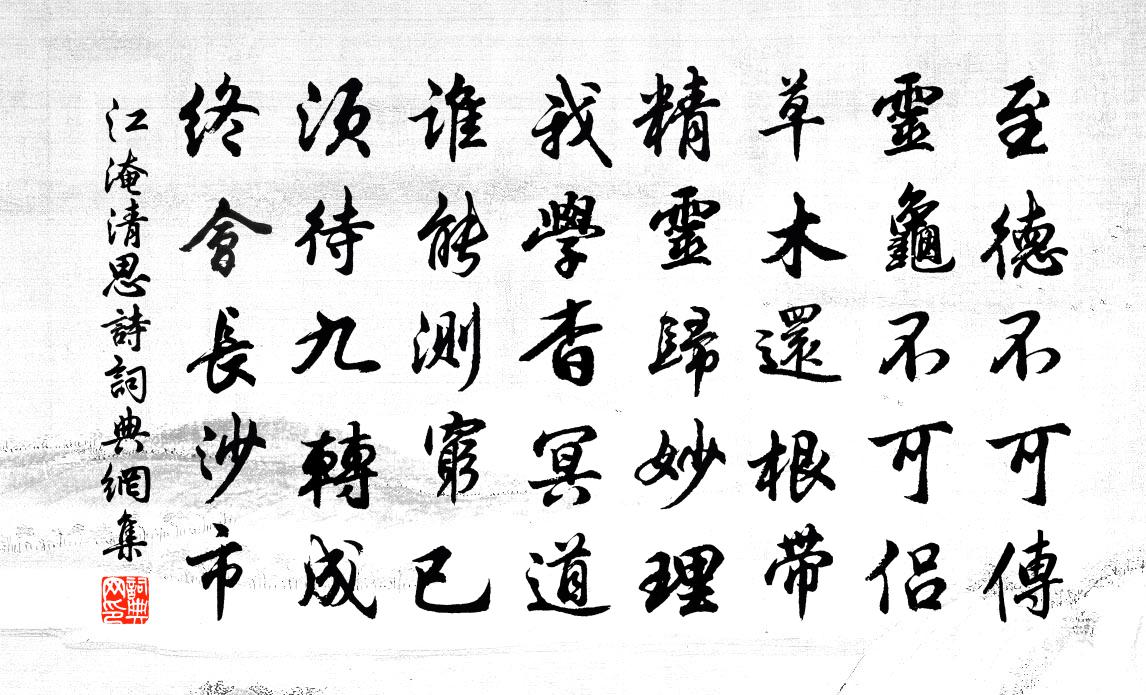 至德不可傳
靈龜不可侶
草木還根帶
精靈歸妙理
我學杳冥道
誰能測窮已
須待九轉成
終會長沙市
江淹清思詩詞典網集
詞典網印